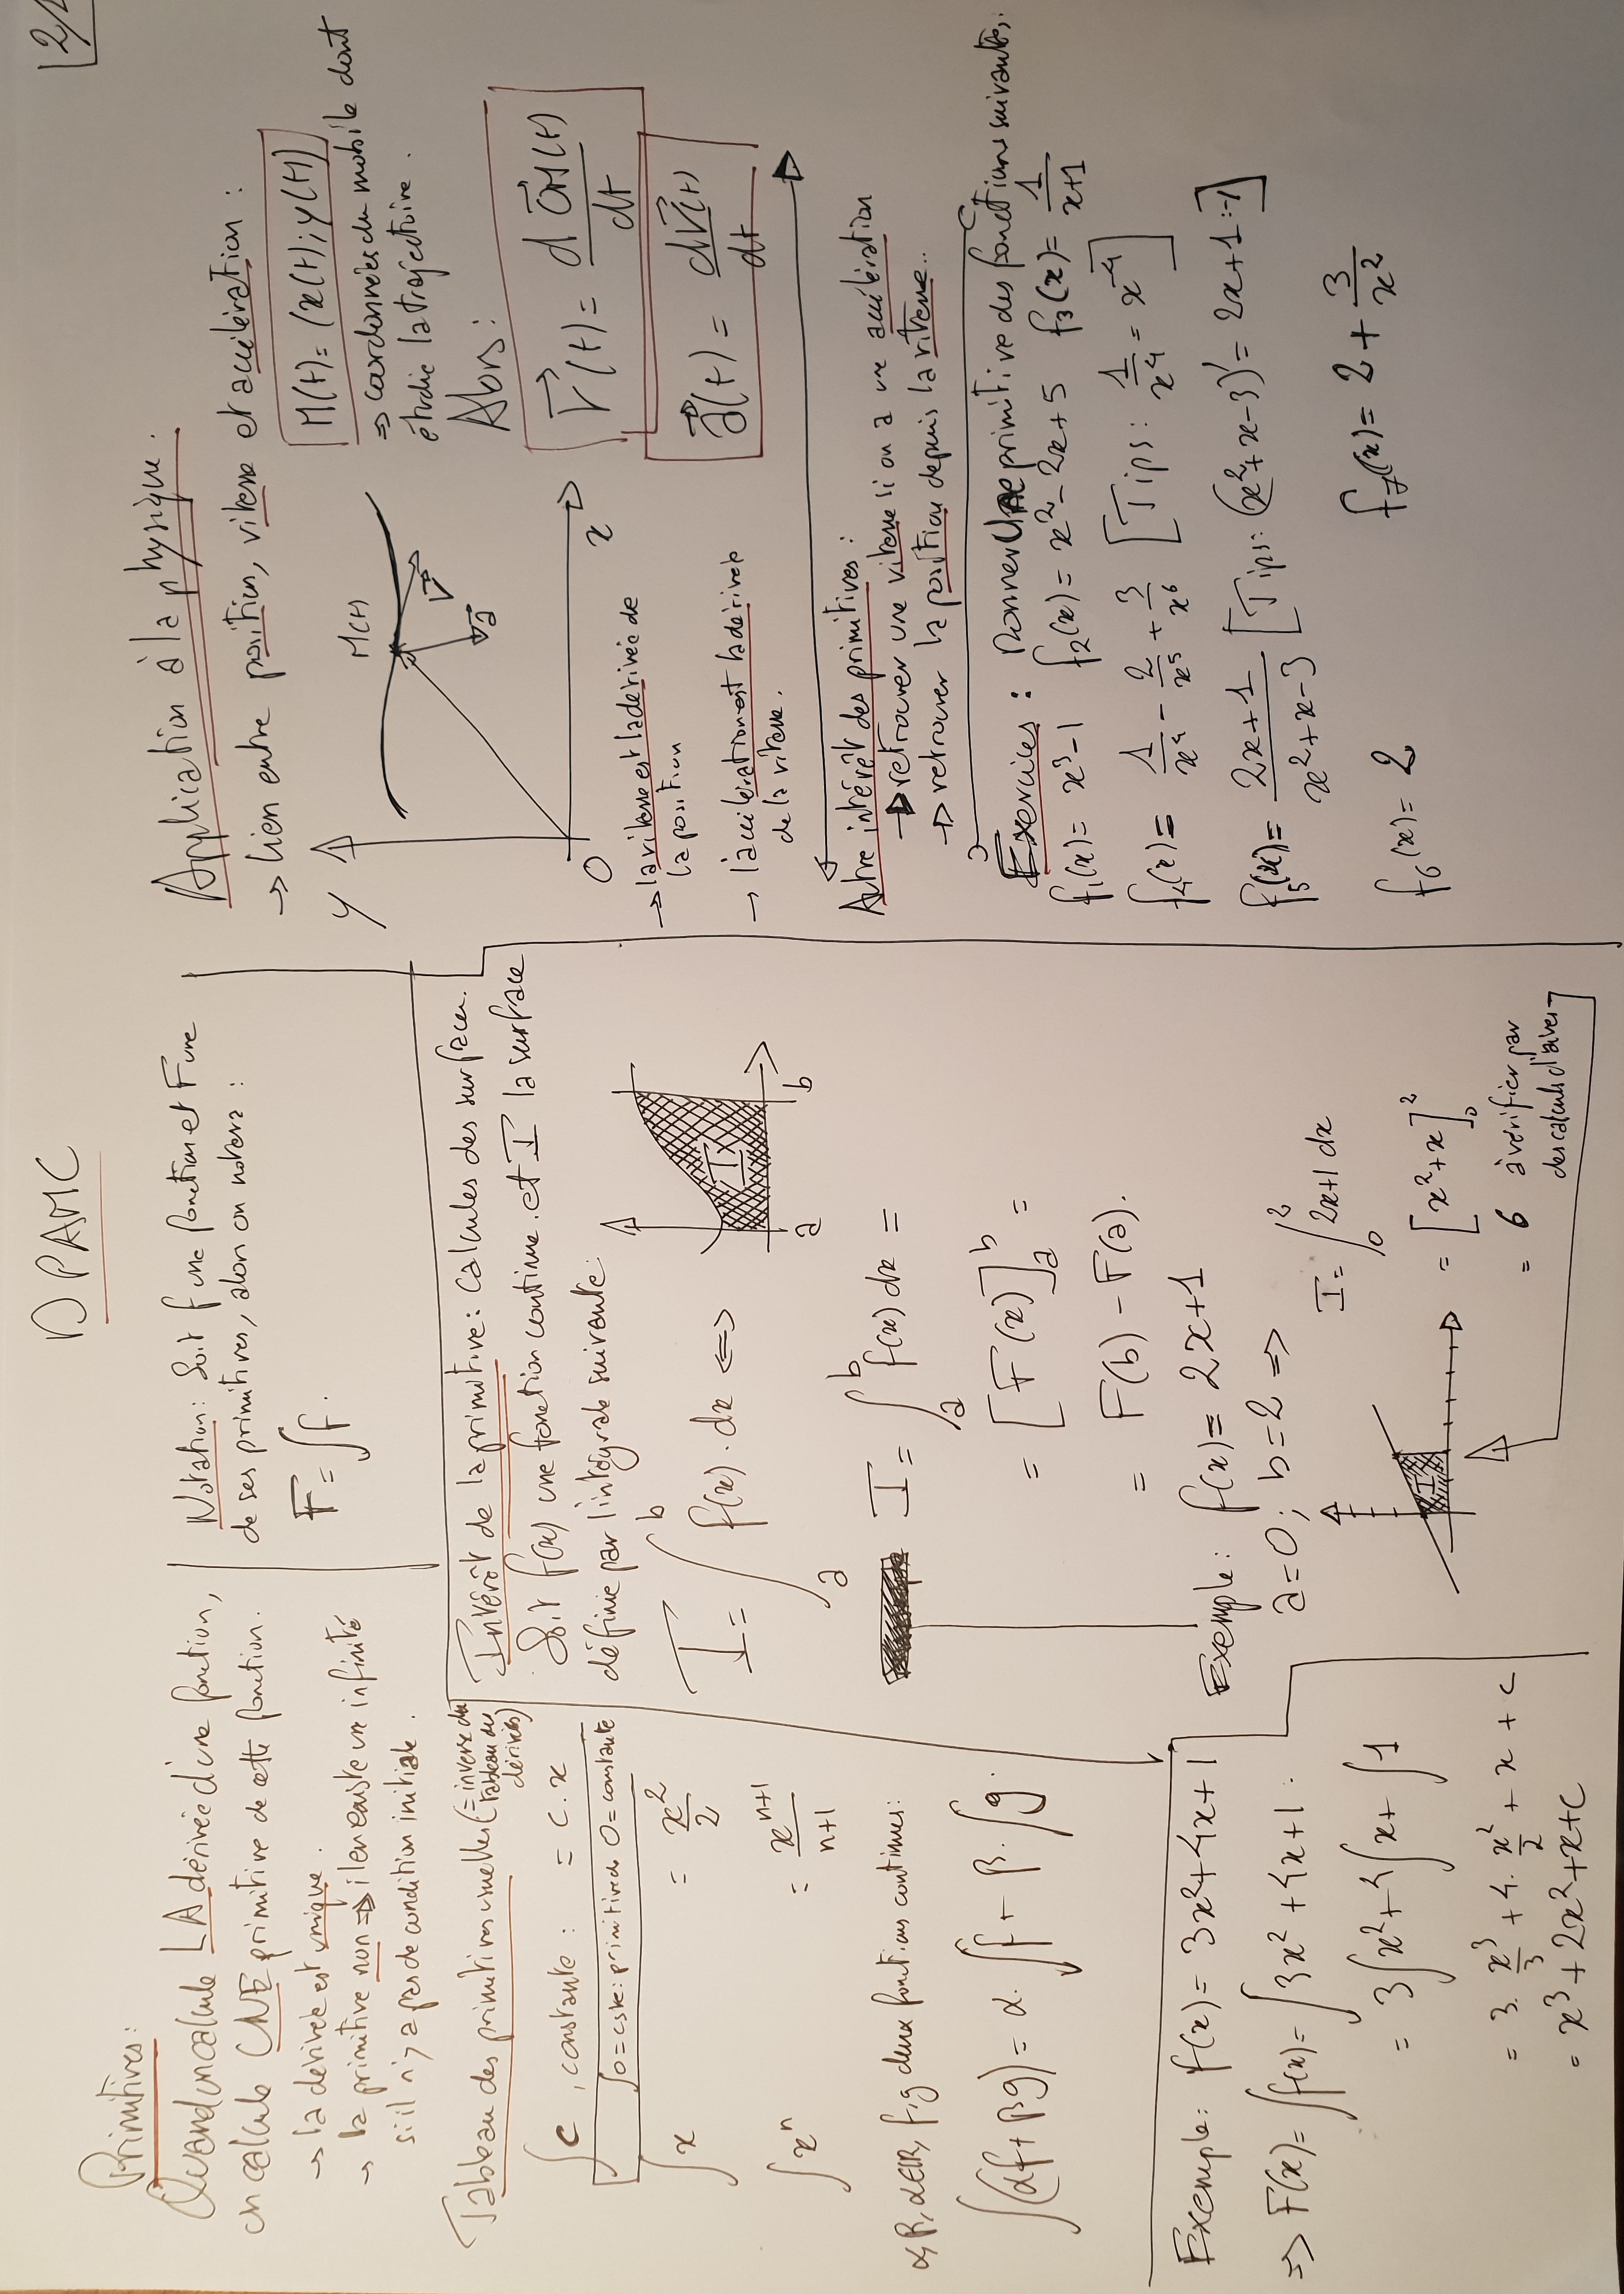 DPAMC
2/2
Primitives:
Quand on calcule LA dérivée d'une fonction,
on calcule UNE primitive de cette fonction.
→ la dérivée est unique.
→ la primitive non ⇒ il en existe une infinité
si il n'y a pas de condition initiale.
Tableau des primitives usuelles (= inverse du
tableau des
dérivées)
∫c , constante : = c.x
∫0 = cste : primitive de 0 = constante
∫x = x²/2
∫xⁿ = xⁿ⁺¹/(n+1)
α, β, α∈ℝ, f,g deux fonctions continues:
∫(αf+βg) = α.∫f + β.∫g.
Exemple: f(x) = 3x²+4x+1
⇒ F(x) = ∫f(x) = ∫3x²+4x+1.
= 3∫x²+4∫x+∫1
= 3.x³/3 + 4.x²/2 + x + c
= x³+2x²+x+c
Notation: Soit f une fonction et F une
de ses primitives, alors on notera :
F = ∫f.
Intérêt de la primitive: Calcules des surfaces.
Soit f(x) une fonction continue. et I la surface
définie par l'intégrale suivante:
I = ∫ₐᵇ f(x).dx ⇔
I
a b
I = ∫ₐᵇ f(x) dx =
= [F(x)]ₐᵇ =
= F(b) - F(a).
Exemple: f(x) = 2x+1
a=0; b=2 ⇒
I = ∫₀² 2x+1 dx
I
= [x²+x]₀²
= 6 à vérifier par
des calculs d'aires
Application à la physique.
→ lien entre position, vitesse et accélération :
y
M(t)
V⃗
a⃗
O x
M(t) = (x(t); y(t))
⇒ coordonnées du mobile dont
étudie la trajectoire.
Alors:
V⃗(t) = d OM⃗(t)/dt
a⃗(t) = dV⃗(t)/dt
→ la vitesse est la dérivée de
la position
→ l'accélération est la dérivée
de la vitesse.
Autre intérêt des primitives :
→ retrouver une vitesse si on a une accélération
→ retrouver la position depuis la vitesse..
Exercices : Donner Une primitive des fonctions suivantes.
f₁(x) = x³-1 f₂(x) = x²-2x+5 f₃(x) = 1/(x+1)
f₄(x) = 1/x⁴ - 2/x⁵ + 3/x⁶ [Tips: 1/x⁴ = x⁻⁴]
f₅(x) = (2x+1)/(x²+x-3) [Tips: (x²+x-3)' = 2x+1 :-)]
f₆(x) = 2 f₇(x) = 2 + 3/x²